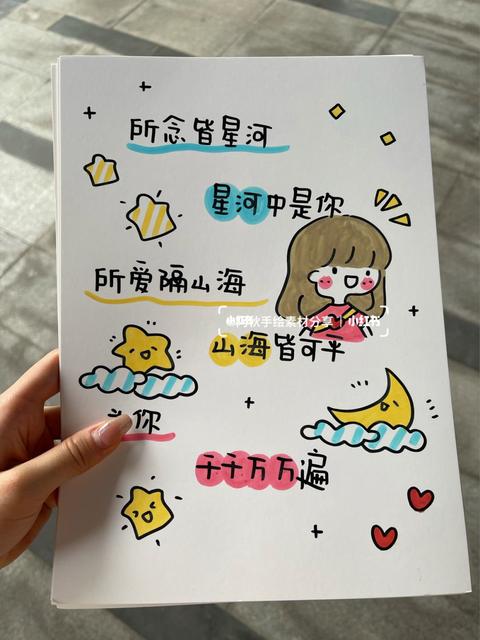 所念皆星河
星河中是你
所爱隔山海
秋手绘素材分享 | 小红书
山海皆可平
你
千千万万遍